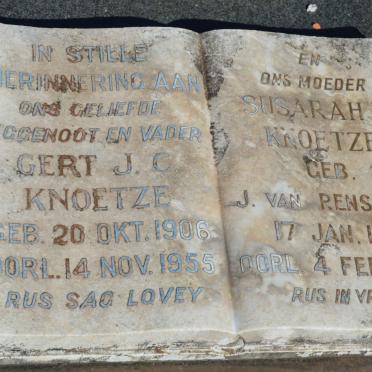 IN STILLE
HERINNERING AAN
ONS GELIEFDE
GGENOOT EN VADER
GERT J. C.
KNOETZE
GEB. 20 OKT. 1906
OORL. 14 NOV. 1955
RUS SAG LOVEY
EN
ONS MOEDER
SUSARAH
KNOETZE
GEB.
J. VAN RENS
17 JAN. 1
OORL. 4 FE
RUS IN VR